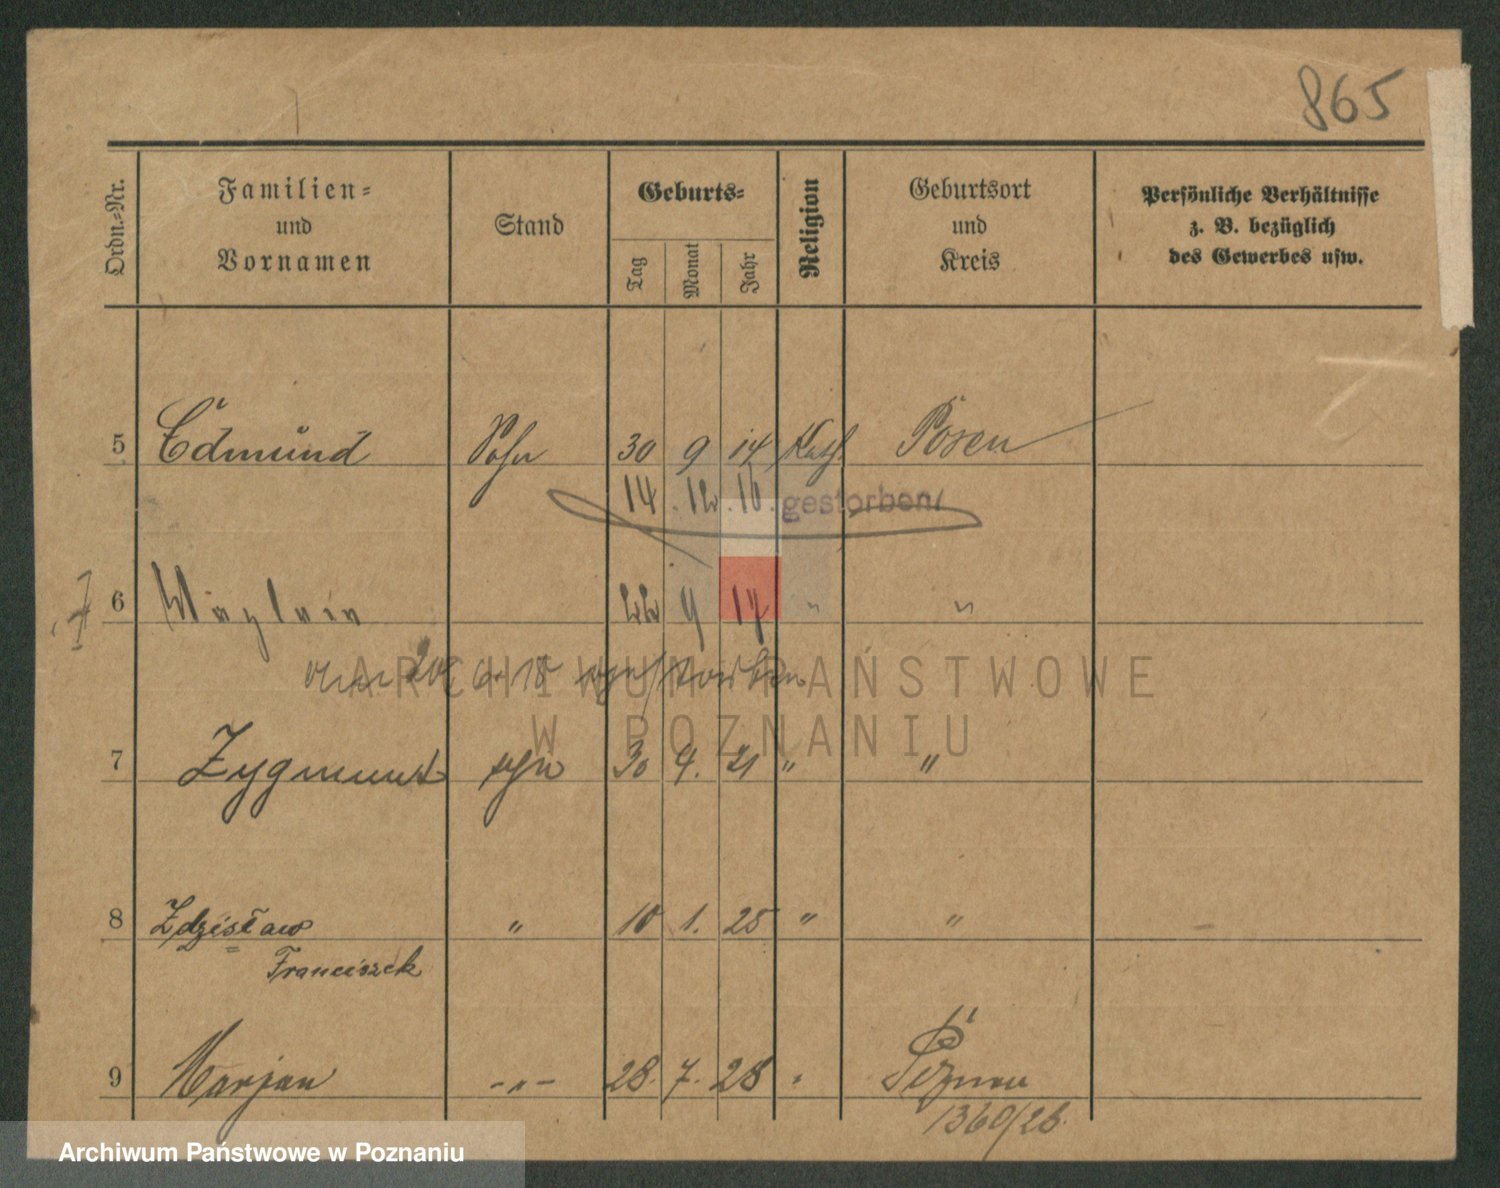 865
Ordn.-Nr.
Familien-
und
Vornamen
Stand
Geburts-
Tag
Monat
Jahr
Religion
Geburtsort
und
Kreis
Persönliche Verhältnisse
z. B. bezüglich
des Gewerbes usw.
5 Edmund Sohn 30 9 14 Kath Posen
14. 12. 16. gestorben
6 22 9 17 " "
20. 6. 18 gestorben
ARCHIWUM PAŃSTWOWE
W POZNANIU
7 Zygmunt 30 4. 21 " "
8 Zdzisław " 10 1. 25 " "
Franciszek
9 Marjan -"- 28. 7. 28 "
1360/28.
Archiwum Państwowe w Poznaniu